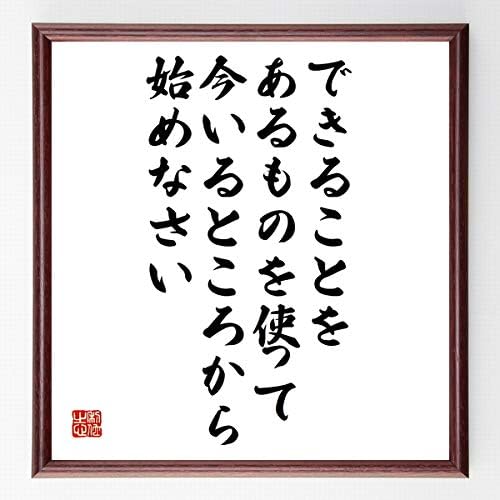 できることを
あるものを使って
今いるところから
始めなさい